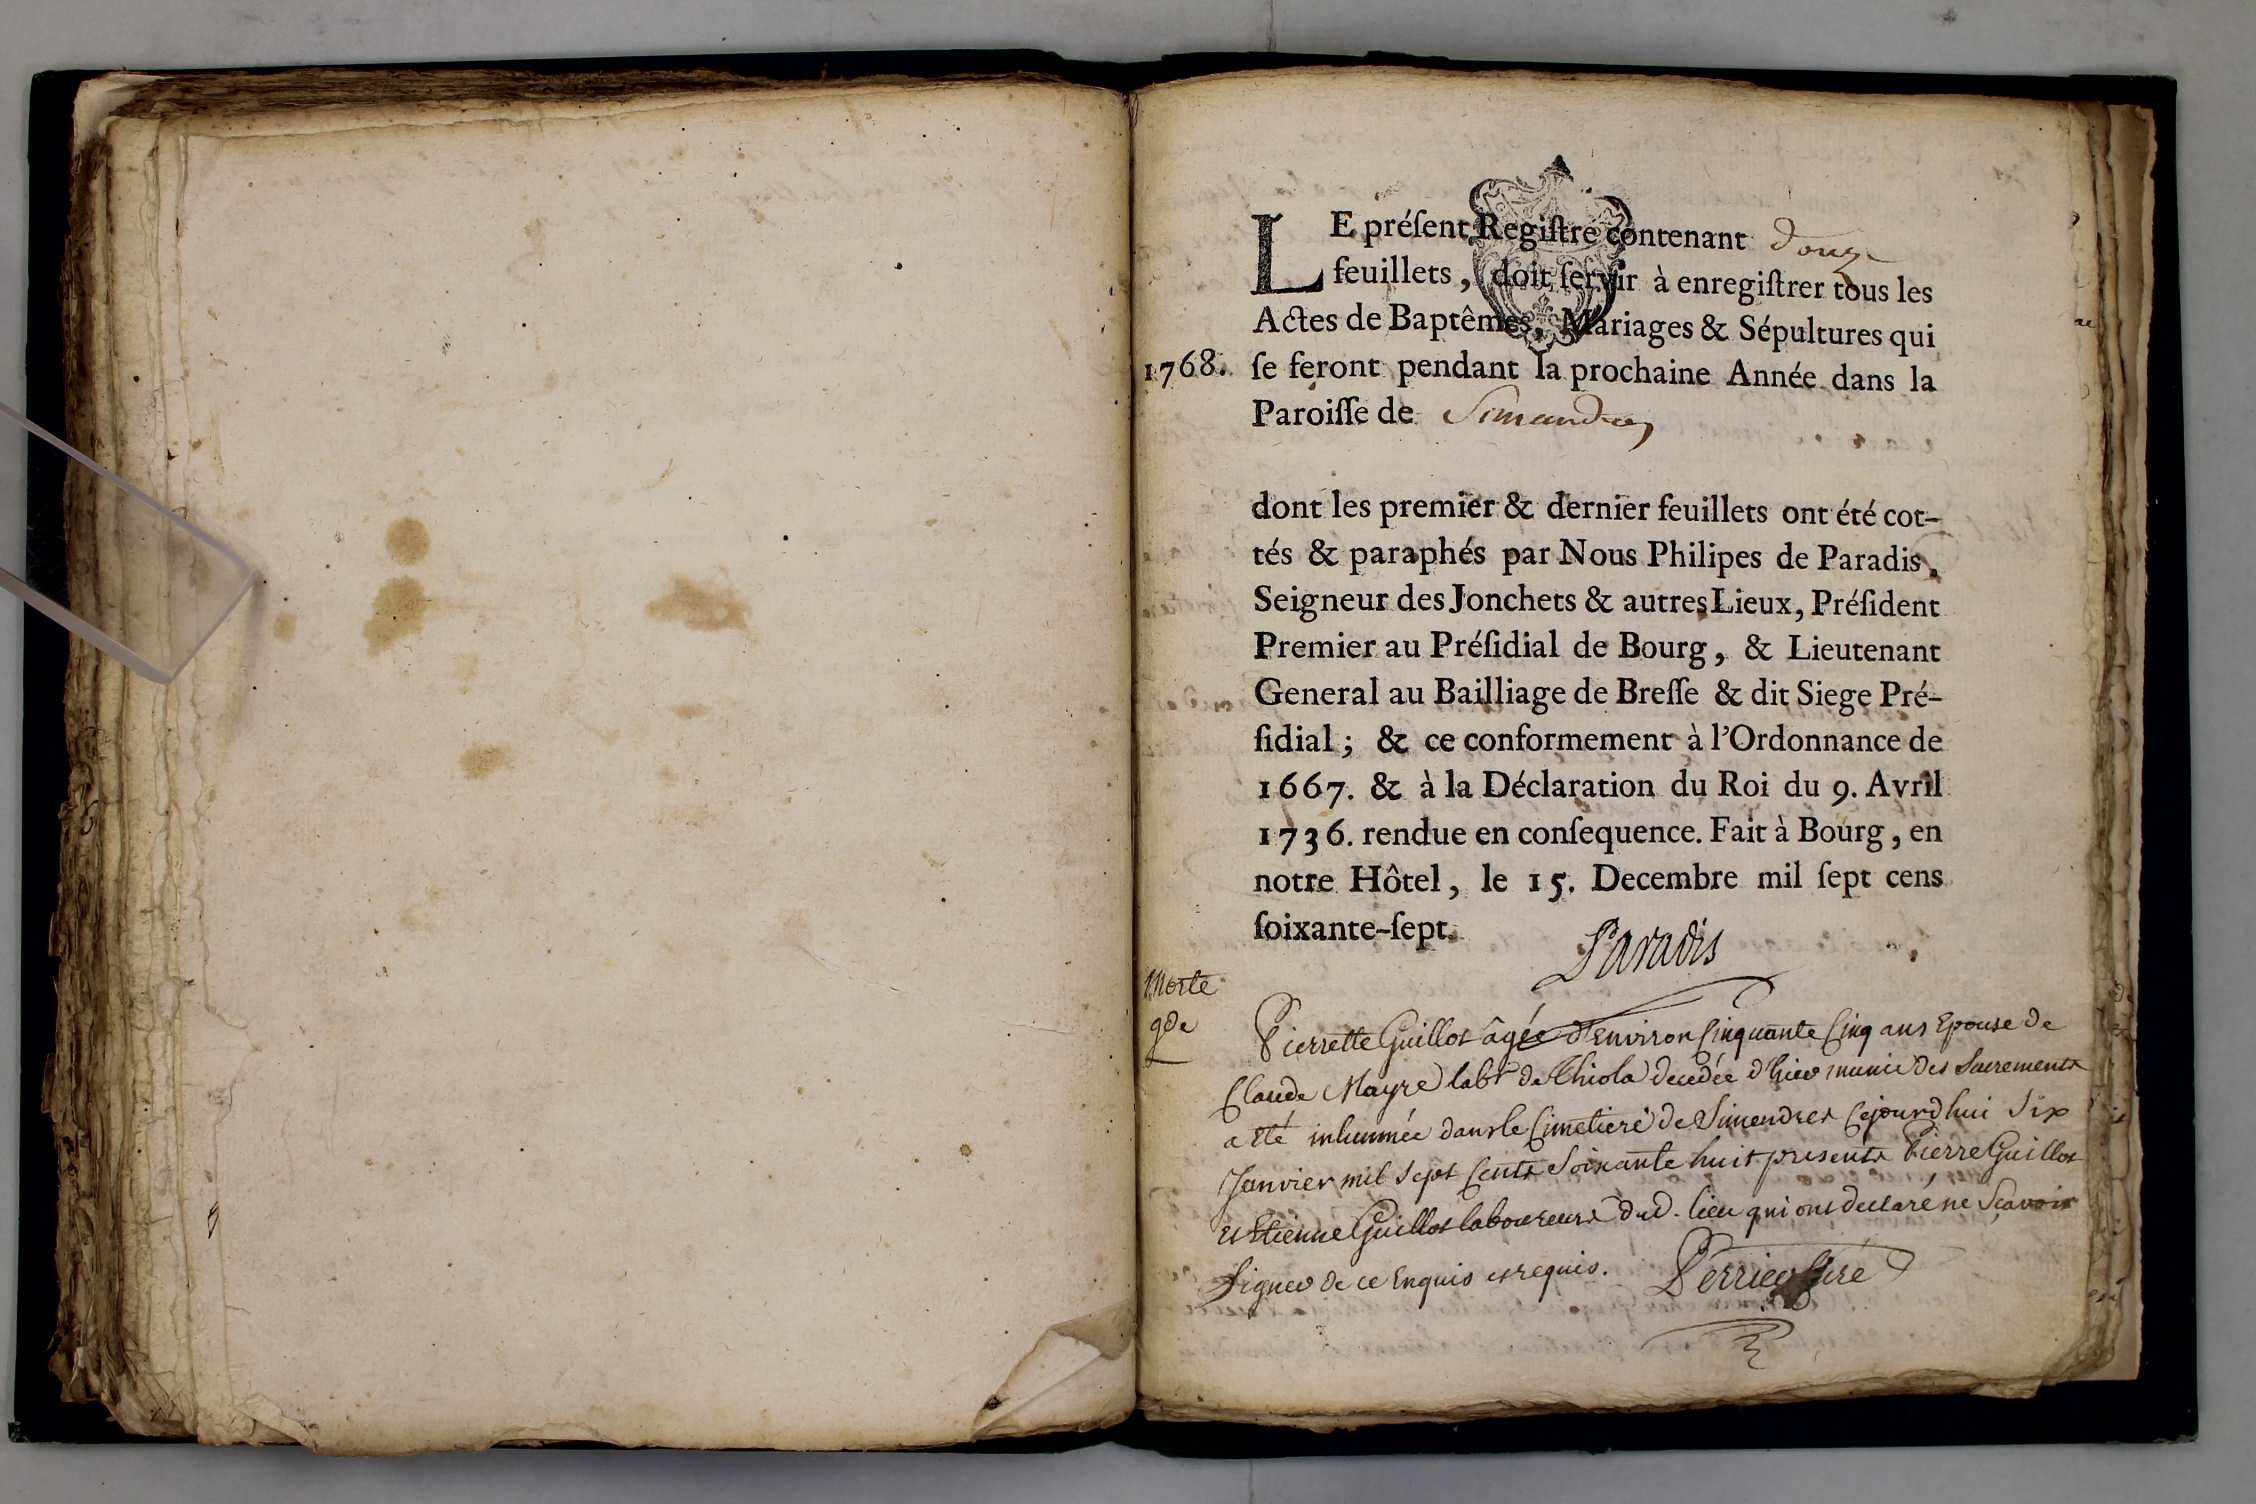 LE préſent Regiſtre contenant douze
feuillets, doit ſervir à enregiſtrer tous les
Actes de Baptêmes, Mariages & Sépultures qui
1768. ſe feront pendant la prochaine Année dans la
Paroiſſe de Simandre
dont les premier & dernier feuillets ont été cot-
tés & paraphés par Nous Philipes de Paradis,
Seigneur des Jonchets & autres Lieux, Préſident
Premier au Préſidial de Bourg, & Lieutenant
General au Bailliage de Breſſe & dit Siege Pré-
ſidial; & ce conformement à l'Ordonnance de
1667. & à la Déclaration du Roi du 9. Avril
1736. rendue en conſequence. Fait à Bourg, en
notre Hôtel, le 15. Decembre mil ſept cens
ſoixante-ſept.
Paradis
Morte
gde
Pierrette Guillot âgée d'Environ Cinquante Cinq ans Epouse de
Claude Mayre labr de Thiola decedée d'hier munie des Sacrements
a Eté inhumée dans le Cimetiere de Simendres Cejourdhui Six
Janvier mil Sept Cents Soixante huit presents Pierre Guillot
et Etienne Guillot laboureurs dud. lieu qui ont declaré ne Scavoir
Signer de ce Enquis et requis.
Perrier Curé